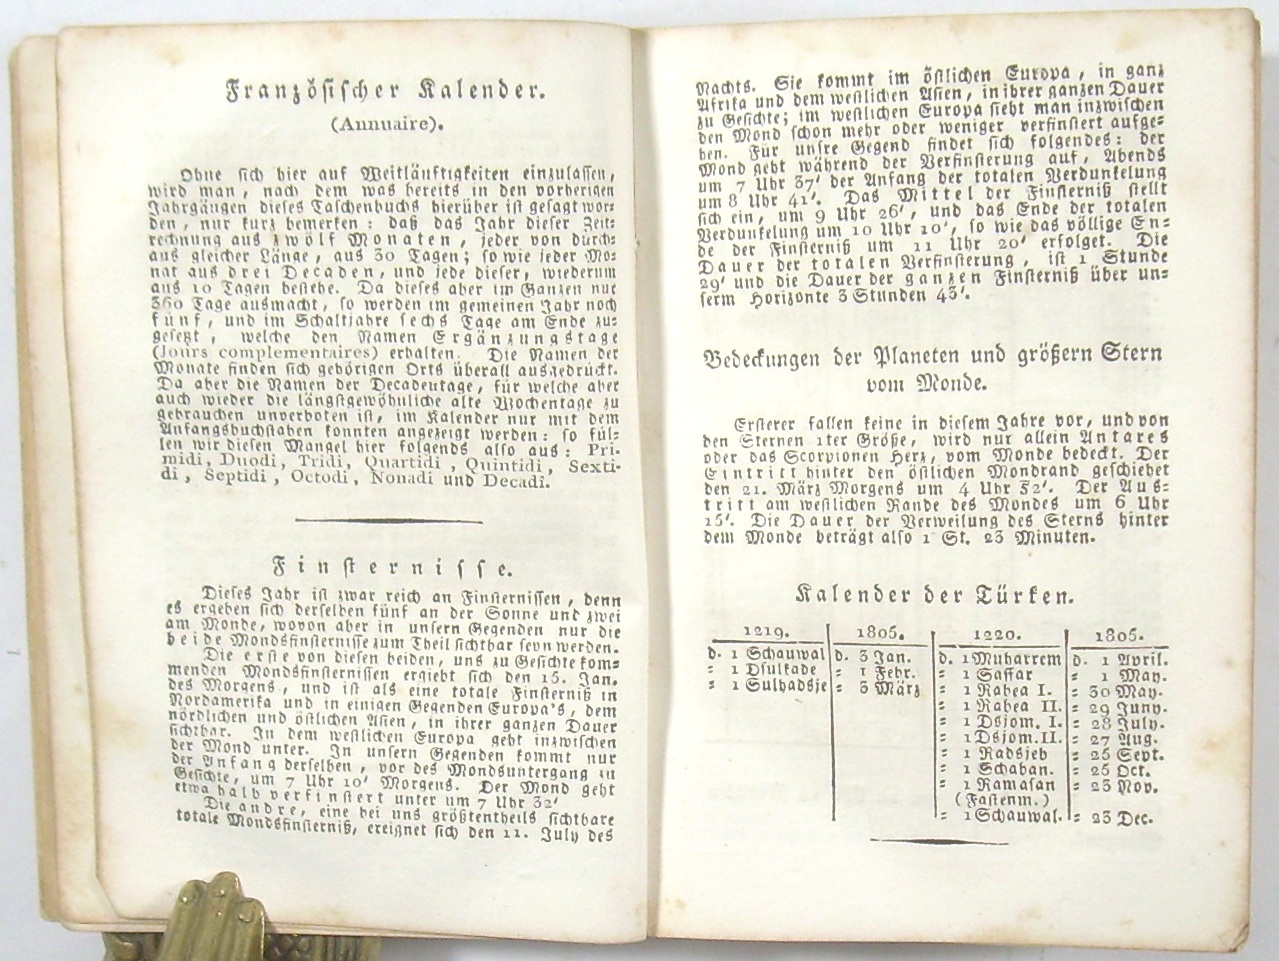 Französischer Kalender.
(Annuaire).
Ohne sich hier auf Weitläuftigkeiten einzulassen,
wird man, nach dem was bereits in den vorherigen
Jahrgängen dieses Taschenbuchs hierüber ist gesagt wor-
den, nur kurz bemerken: daß das Jahr dieser Zeit-
rechnung aus zwölf Monaten, jeder von durch-
aus gleicher Länge, aus 30 Tagen; so wie jeder Mo-
nat aus drei Decaden, und jede dieser, wiederum
aus 10 Tagen bestehe. Da dieses aber im Ganzen nur
360 Tage ausmacht, so werden im gemeinen Jahr noch
fünf, und im Schaltjahre sechs Tage am Ende zu-
gesetzt, welche den Namen Ergänzungstage
(Jours complementaires) erhalten. Die Namen der
Monate finden sich gehörigen Orts überall ausgedrückt.
Da aber die Namen der Decadentage, für welche aber
auch wieder die längstgewöhnliche alte Wochentage zu
gebrauchen unverboten ist, im Kalender nur mit dem
Anfangsbuchstaben konnten angezeigt werden: so fül-
len wir diesen Mangel hier folgends also aus: Pri-
midi, Duodi, Tridi, Quartidi, Quintidi, Sexti-
di, Septidi, Octodi, Nonadi und Decadi.
Finsternisse.
Dieses Jahr ist zwar reich an Finsternissen, denn
es ergeben sich derselben fünf an der Sonne und zwei
am Monde, wovon aber in unsern Gegenden nur die
beide Mondsfinsternisse zum Theil sichtbar seyn werden.
Die erste von diesen beiden, uns zu Gesichte kom-
menden Mondsfinsternissen ergiebt sich den 15. Jan.
des Morgens, und ist als eine totale Finsterniß in
Nordamerika und in einigen Gegenden Europa's, dem
nördlichen und östlichen Asien, in ihrer ganzen Dauer
sichtbar. In dem westlichen Europa geht inzwischen
der Mond unter. In unsern Gegenden kommt nur
der Anfang derselben, vor des Mondsuntergang zu
Gesichte, um 7 Uhr 10' Morgens. Der Mond geht
etwa halb verfinstert unter um 7 Uhr 32'
Die andre, eine bei uns größtentheils sichtbare
totale Mondsfinsterniß, ereignet sich den 11. July des
Nachts. Sie kommt im östlichen Europa, in ganz
Afrika und dem westlichen Asien, in ihrer ganzen Dauer
zu Gesichte; im westlichen Europa sieht man inzwischen
den Mond schon mehr oder weniger verfinstert aufge-
hen. Für unsre Gegend findet sich folgendes: der
Mond geht während der Verfinsterung auf, Abends
um 7 Uhr 37' der Anfang der totalen Verdunkelung
um 8 Uhr 41'. Das Mittel der Finsterniß stellt
sich ein, um 9 Uhr 26', und das Ende der totalen
Verdunkelung um 10 Uhr 10', so wie das völlige En-
de der Finsterniß um 11 Uhr 20' erfolget. Die
Dauer der totalen Verfinsterung, ist 1 Stunde
29' und die Dauer der ganzen Finsterniß über un-
serm Horizonte 3 Stunden 43'.
Bedeckungen der Planeten und größern Stern
vom Monde.
Ersterer fallen keine in diesem Jahre vor, und von
den Sternen 1ter Größe, wird nur allein Antares
oder das Scorpionen Herz, vom Monde bedeckt. Der
Eintritt hinter den östlichen Mondrand geschiehet
den 21. März Morgens um 4 Uhr 52'. Der Aus-
tritt am westlichen Rande des Mondes um 6 Uhr
15'. Die Dauer der Verweilung des Sterns hinter
dem Monde beträgt also 1 St. 23 Minuten.
Kalender der Türken.
1219. 1805. 1220. 1805.
d. 1 Schauwal d. 3 Jan. d. 1 Muharrem d. 1 April.
= 1 Dsulkade = 1 Febr. = 1 Saffar = 1 May.
= 1 Sulhadsje = 3 März = 1 Rabea I. = 30 May.
= 1 Rabea II. = 29 Juny.
= 1 Dsjom. I. = 28 July.
= 1 Dsjom. II. = 27 Aug.
= 1 Radsjeb = 25 Sept.
= 1 Schaban. = 25 Oct.
= 1 Ramasan = 23 Nov.
(Fastenm.)
= 1 Schauwal. = 23 Dec.